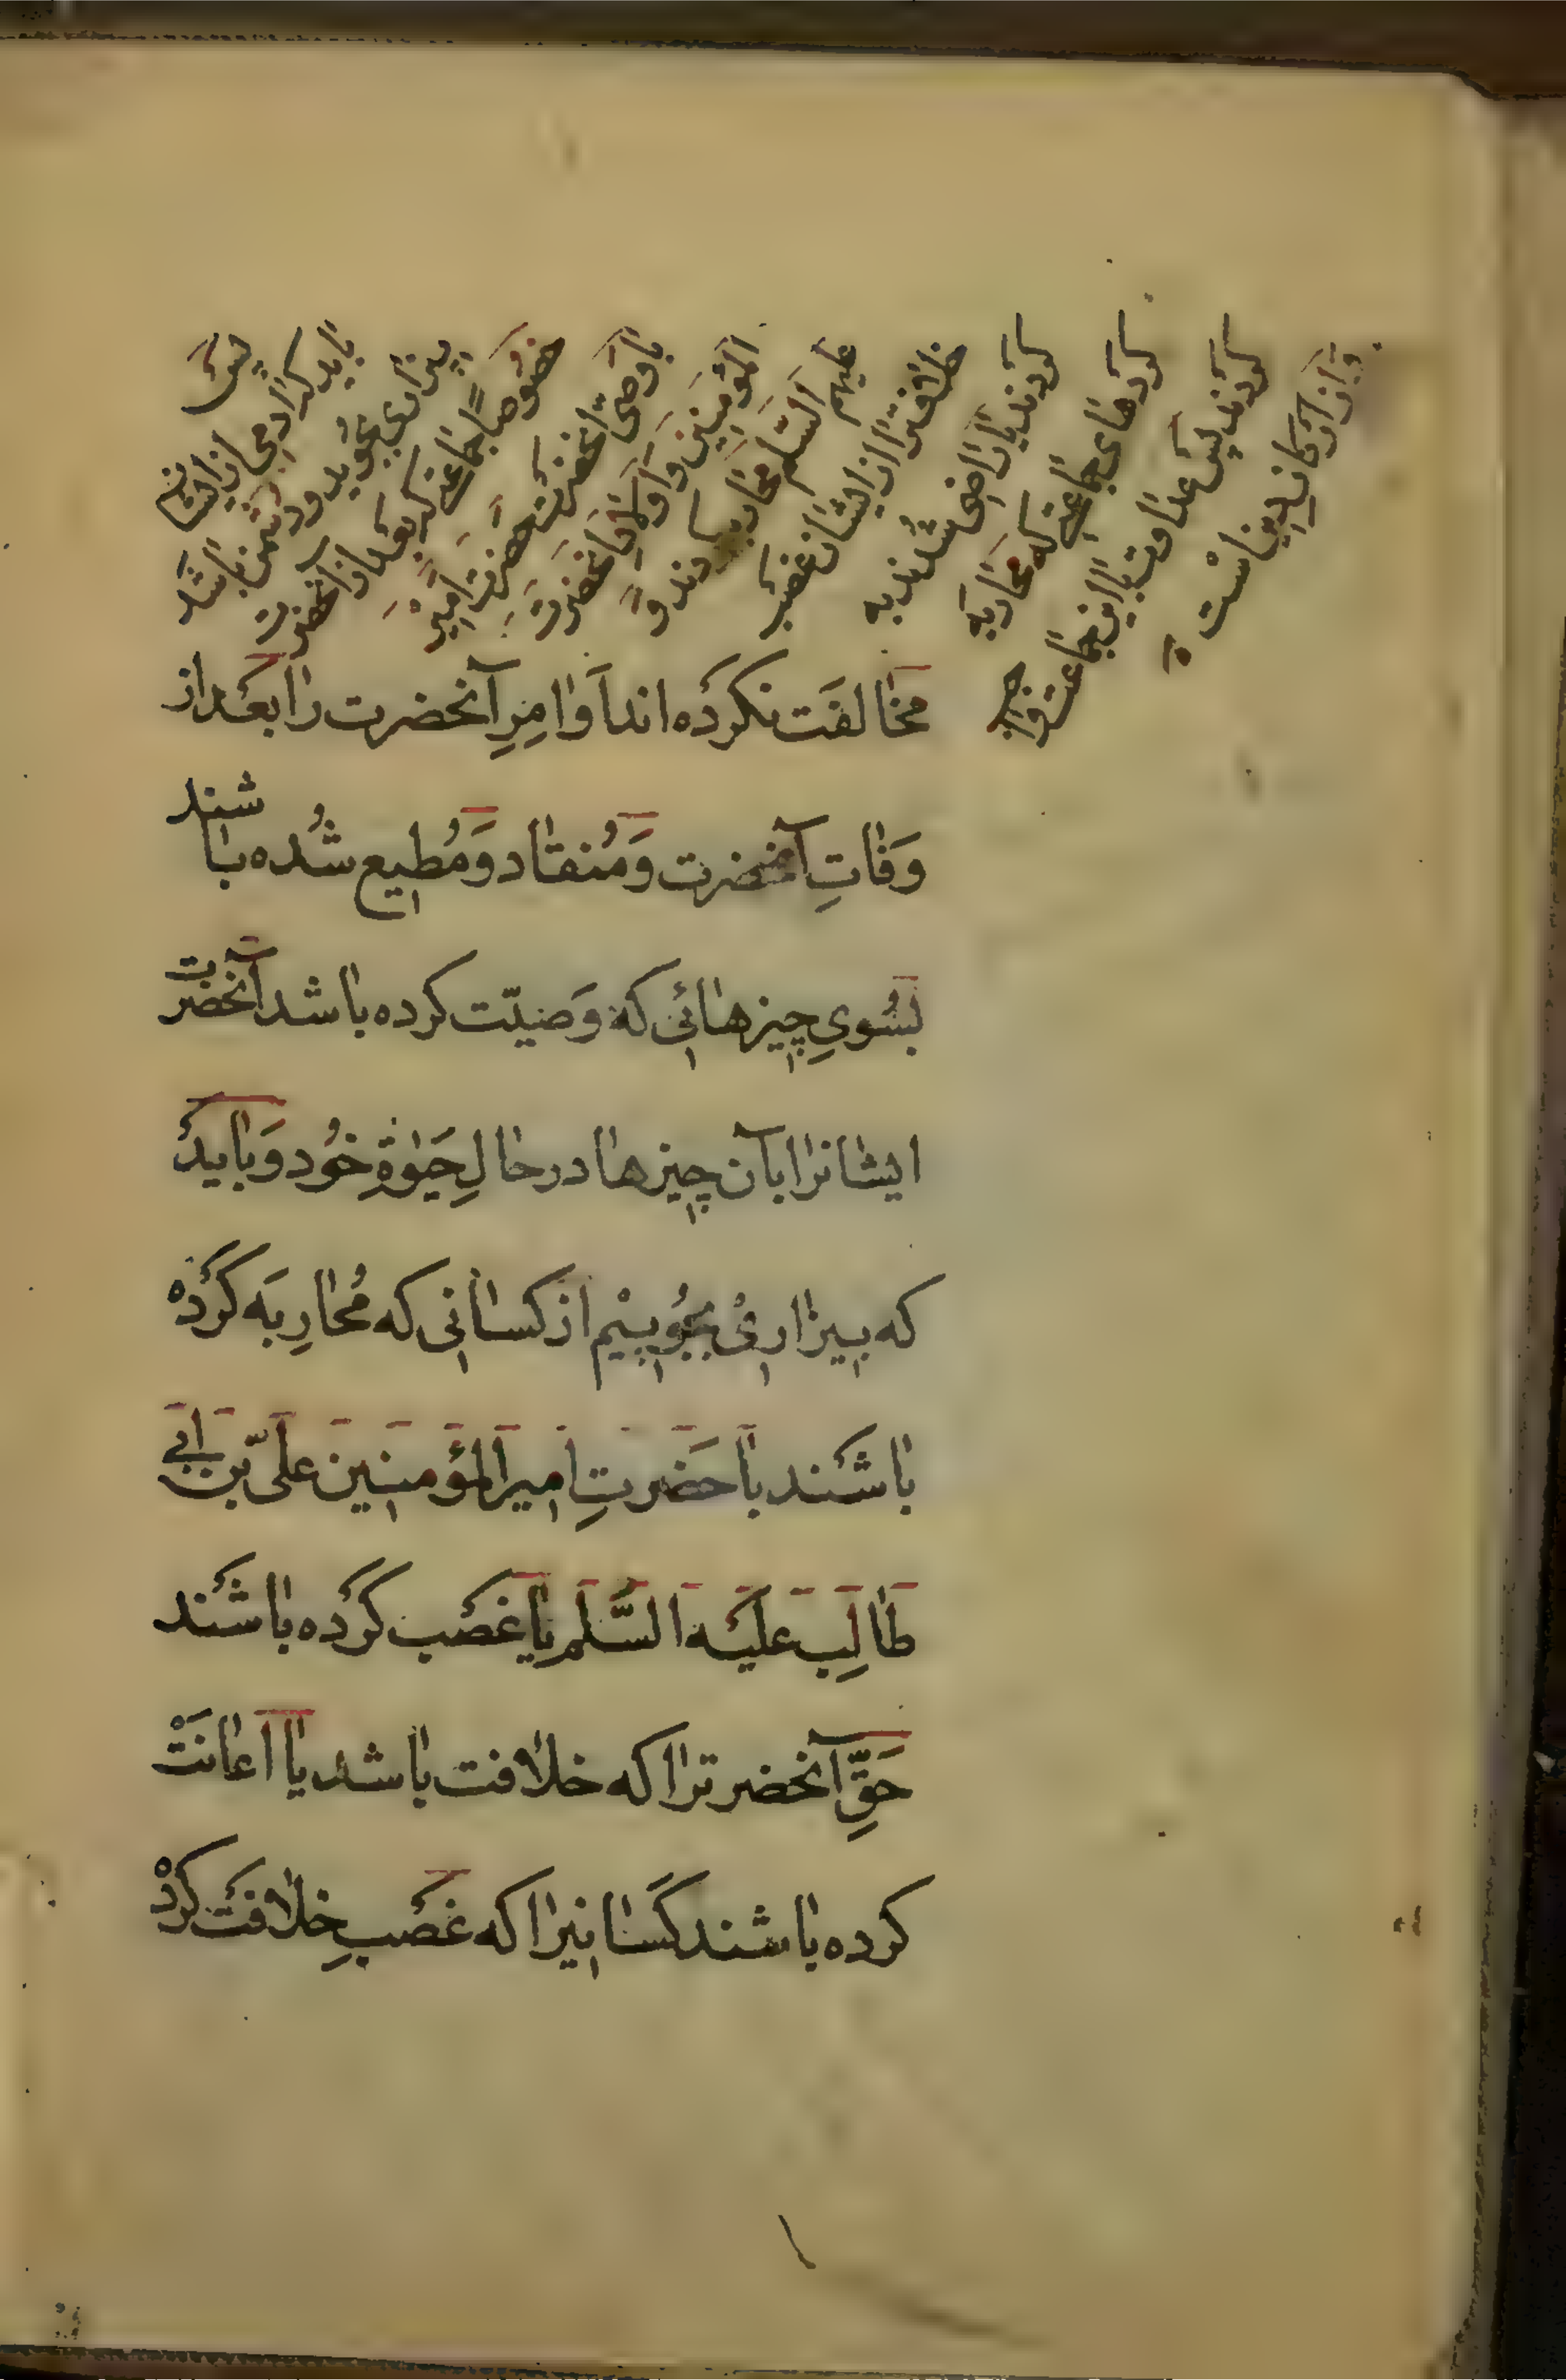 پس
باید که آدمی از ایشان
بیزاری بجوید و دشمن باشد
خصوصاً جماعتی که بعد از آنحضرت
با وصی آنحضرت حضرت امیر
المؤمنین و اولاد آنحضرت
علیهم السّلم محاربه کردند و
خلافترا از ایشان غصب
کردند یا راضی شدند به
کردهای جماعتی که محاربه
کردند پس عداوت با این جماعت واجب
و از ارکان دین است
مخالفت نکرده‌اند اَوامِرِ آنحضرت را بعد از
وَفاتِ آنحضرت وَ مُنقاد وَ مُطیع شُده باشند
بسُویِ چیزهائی که وَصیّت کرده باشد آنحضرت
ایشانرا بآن چیزها در حالِ حَیوٰةِ خُود وَ باید
که بیزاری بجُوییْم از کسانی که مُحارِبَه کرْدهْ
باشَند با حَضرتِ امیرالمؤمنین علیّ بن ابی
طالِب عَلیْه السَّلم یا غَصْب کرْده باشَند
حَقِّ آنحضرترا که خلافت باشد یا اعانَتْ
کرده باشند کَسانیرا که غَصْبِ خِلافَت کردْ